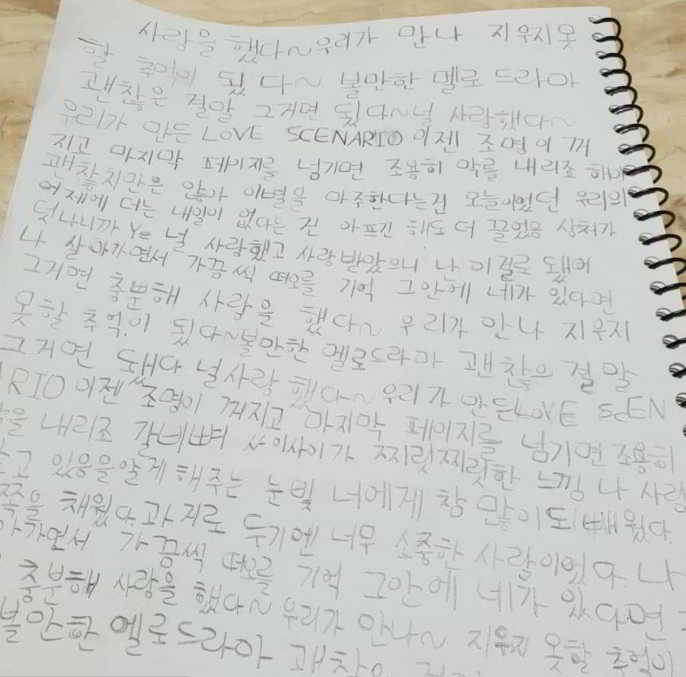 사랑을 했다~우리가 만나 지우지 못
할 추억이 됬다~ 볼만한 멜로 드라마
괜찮은 결말 그거면 됬다~널 사랑했다~
우리가 만든 LOVE SCENARIO 이젠 조명이 꺼
지고 마지막 페이지를 넘기면 조용히 막를 내리죠 하나
괜찮치만은 않아 이별을 마주한다는건 오늘이였던 우리의
어제에 더는 내일이 없다는 건 아프긴 해도 더 끌었음 상처가
덧나니까 Ye 널 사랑했고 사랑 받았으니 나 이걸로 됐어
나 살아가면서 가끔씩 떠오를 기억 그안에 네가 있다면
그거면 충분해 사랑을 했다~ 우리가 만나 지우지
못할 추억이 됬다~볼만한 멜로드라마 괜찮은 결말
그거면 됐다 널사랑 했다~ 우리가 만든LOVE SCEN
ARIO 이젠 조명이 꺼지고 마지막 페이지를 넘기면 조용히
막을 내리죠 갈비뼈 사이사이가 찌릿찌릿한 느낌 나 사랑
받고 있음을알게 해주는 눈빛 너에게 참 많이도 배웠다.
쪽을 채웠다.과거로 두기엔 너무 소중한 사람이었다. 나
아가면서 가끔씩 떠오를 기억 그안에 네가 있다면
충분해 사랑을 했다~ 우리가 만나~ 지우지 못할 추억이
볼만한 멜로드라마 괜찮은